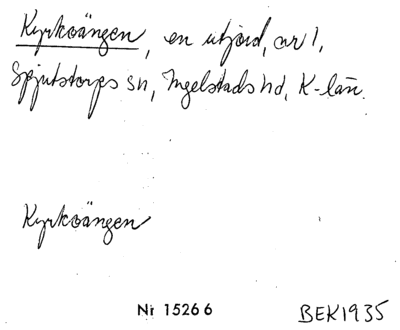 Kyrkoängen, en utjord, nr 1,
Spjutstorps sn, Ingelstads hd, K-län.
Kyrkoängen
Nr 15266
BEK1935